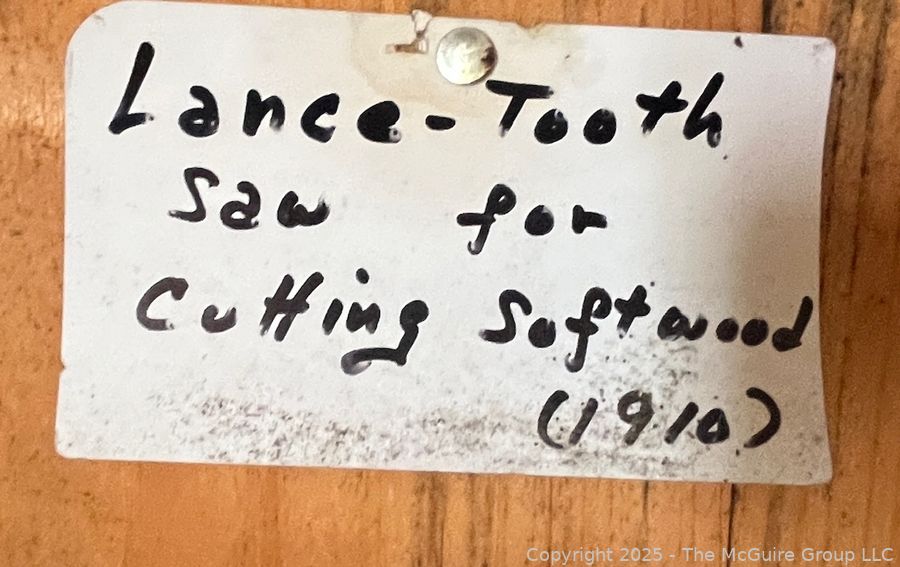 Lance-Tooth
Saw for
Cutting Softwood
(1910)
Copyright 2025 - The McGuire Group LLC